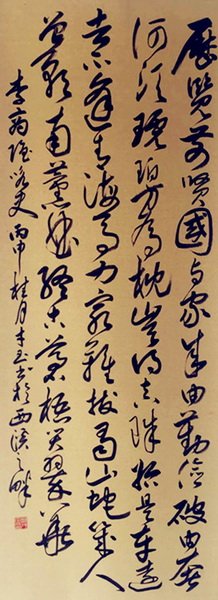 歷覽前賢國与家成由勤儉破由奢
何須琥珀方為枕豈得真珠始是車運
去不逢青海馬力窮難拔蜀山蛇幾人
曾預南薰曲終古蒼梧哭翠華
李商隱咏史丙申桂月書於西溪之畔